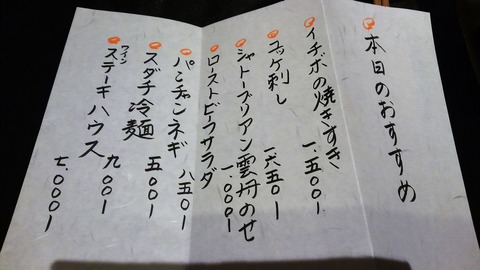 本日のおすすめ
イチボの焼きすき 一、五〇〇ー
ユッケ刺し 一、六五〇ー
シャトーブリアン雲丹のせ 一、〇〇〇ー
ローストビーフサラダ
パンチャンネギ 八五〇ー
スダチ冷麺 五〇〇ー
ワイン
ステーキハウス 九〇〇ー
七、〇〇〇ー